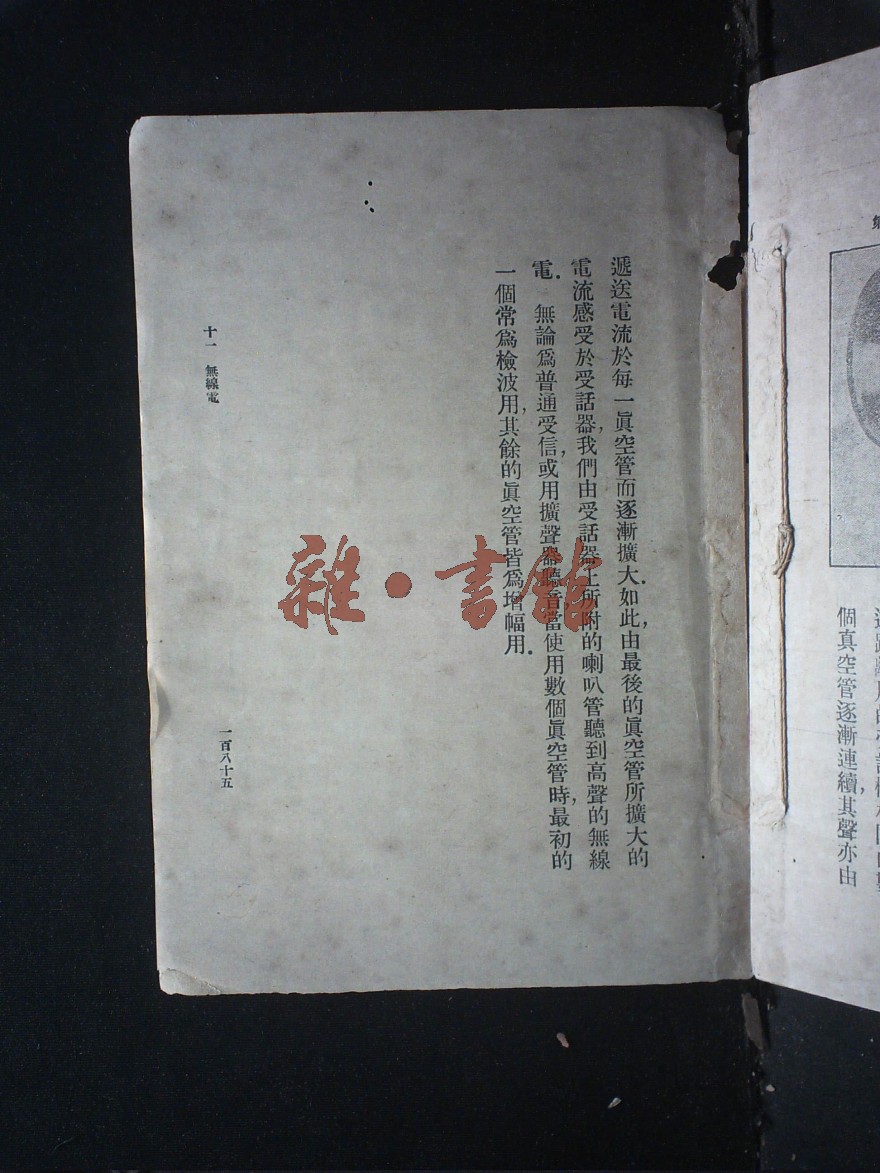 個真空管逐漸連續,其聲亦由
遞送電流於每一眞空管而逐漸擴大.如此,由最後的眞空管所擴大的
電流感受於受話器,我們由受話器上所附的喇叭管聽到高聲的無線
電. 無論爲普通受信,或用擴聲器聽音當使用數個眞空管時,最初的
一個常爲檢波用,其餘的眞空管皆爲增幅用.
十一 無線電
一百八十五
雜·書館